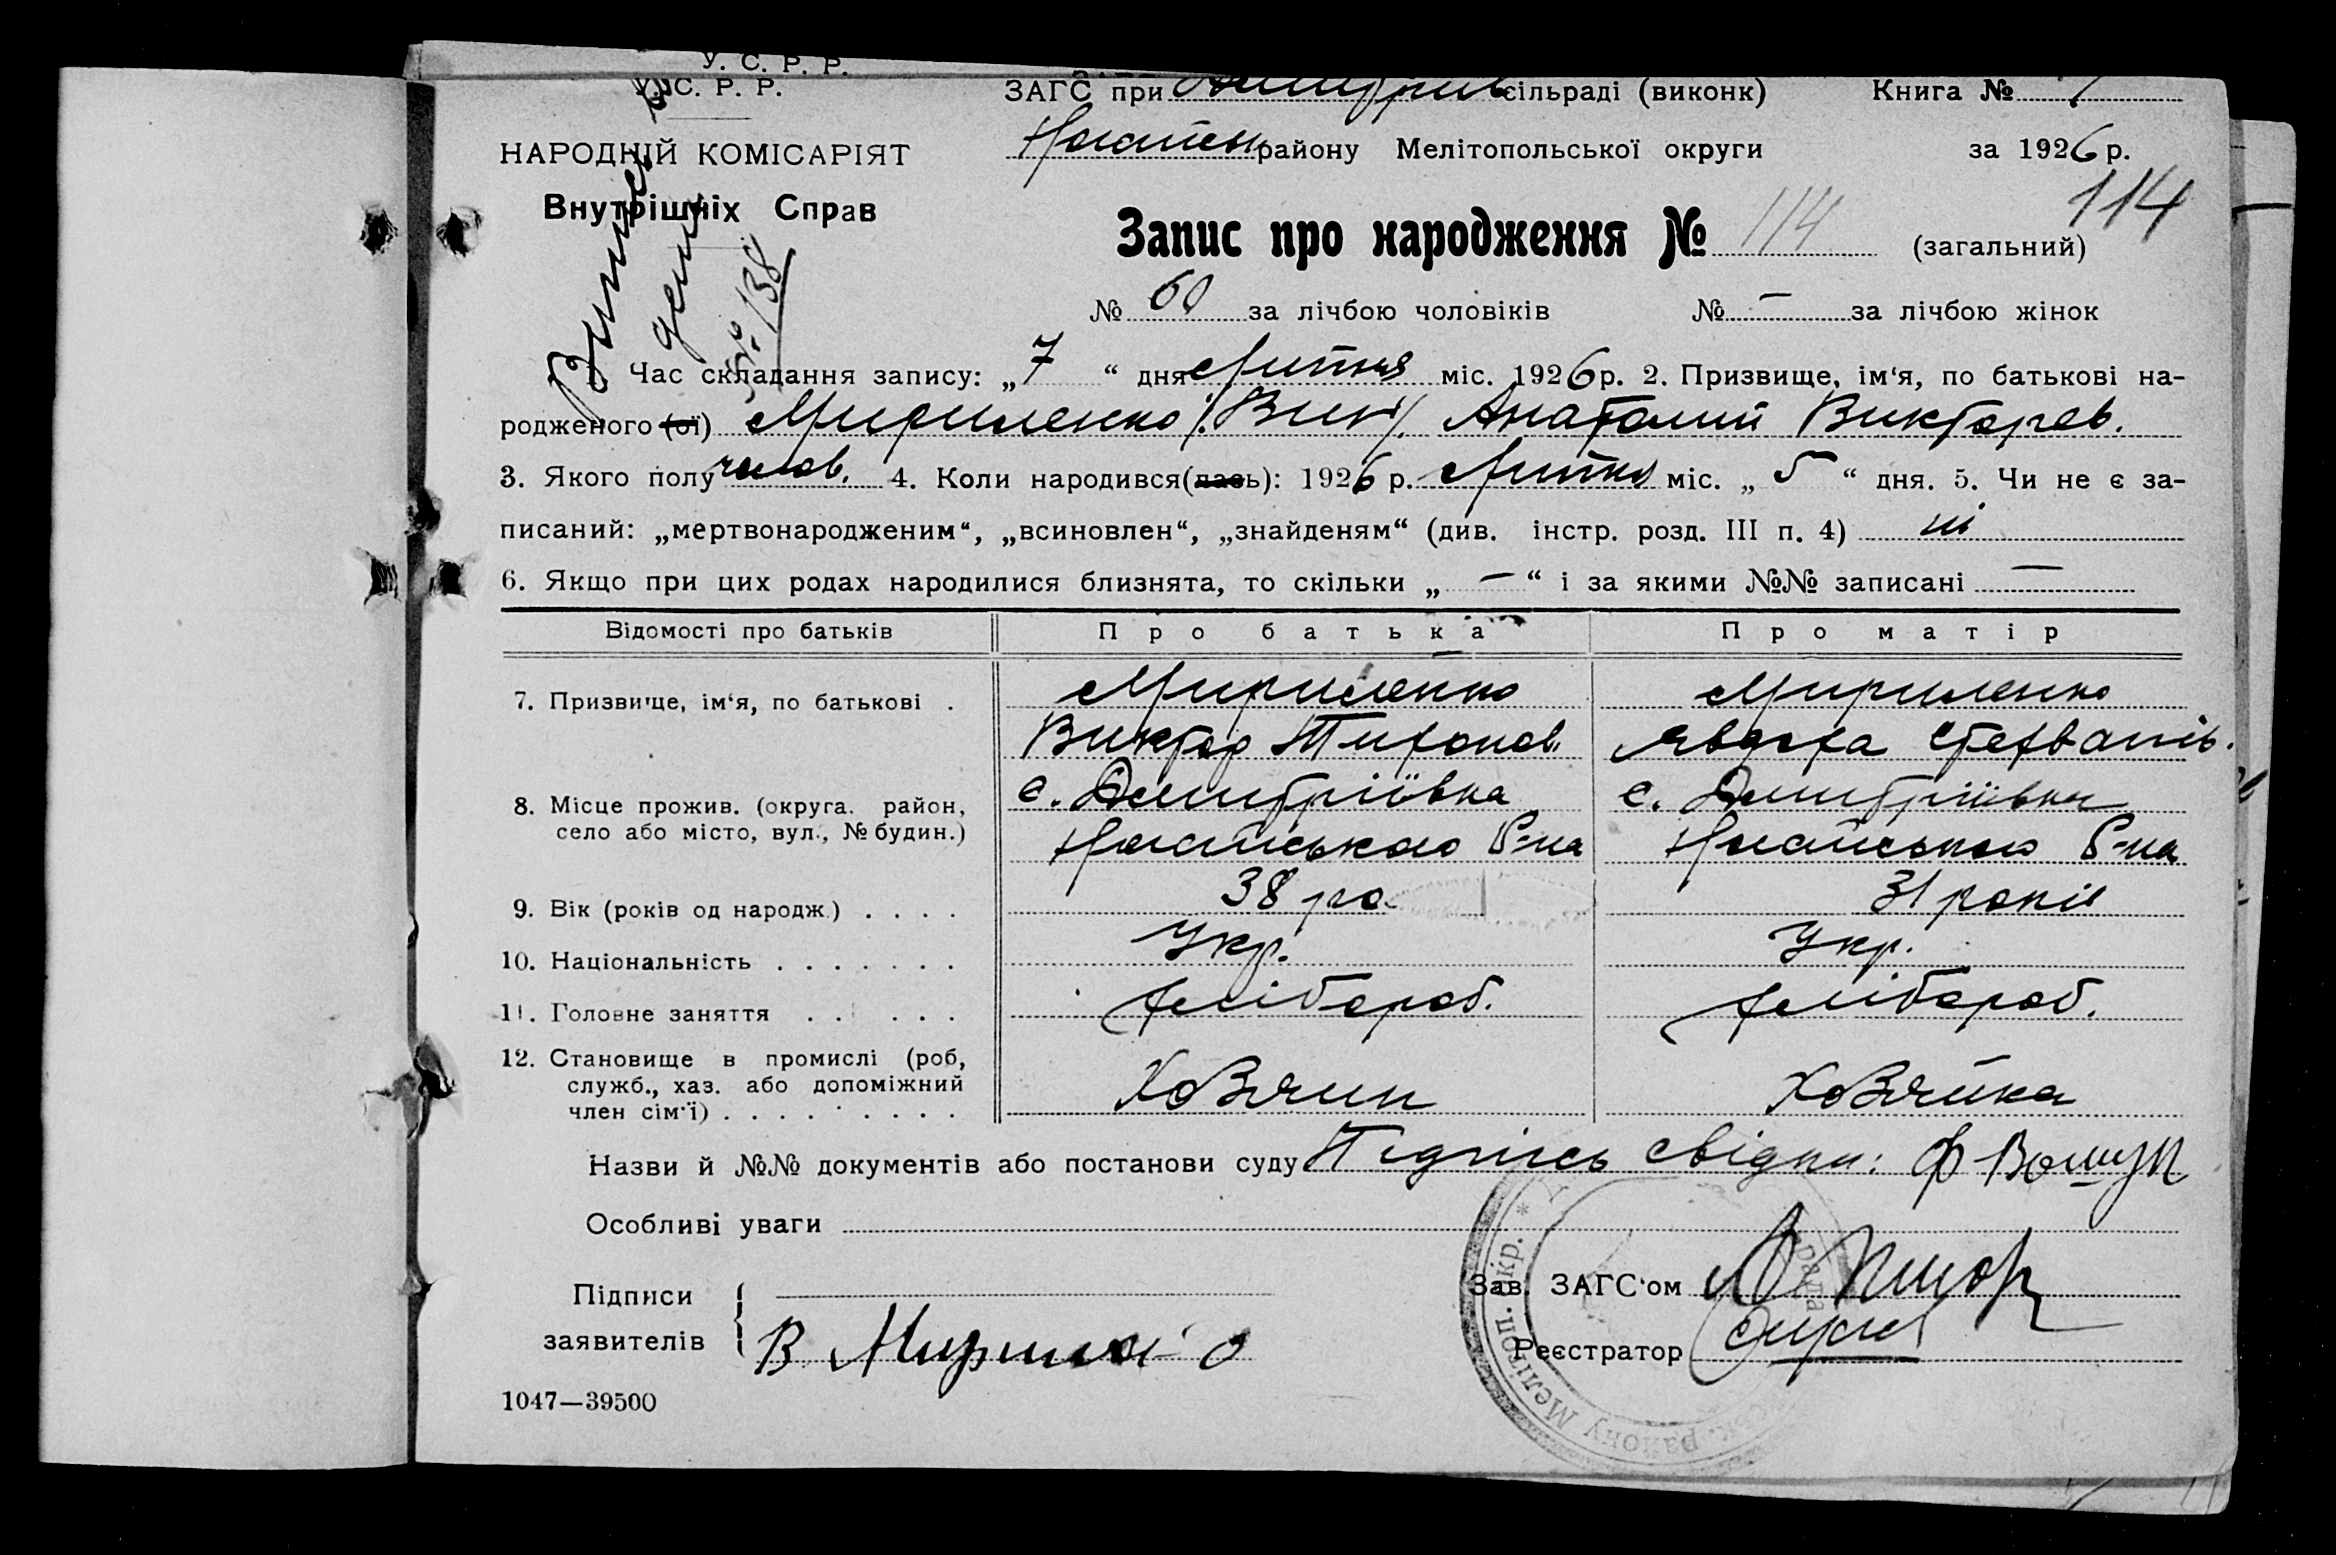 У. С. Р. Р.
У. С. Р. Р.
ЗАГС при Дмитрів сільраді (виконк) Книга №
НАРОДНІЙ КОМІСАРІЯТ
Ногайськ району Мелітопольської округи за 1926 р.
Внутрішніх Справ
114
Запис про народження № 114 (загальний)
№ 138
№ 60 за лічбою чоловіків № — за лічбою жінок
Час складання запису: „7“ дня Липня міс. 1926 р. 2. Призвище, ім‘я, по батькові на-
родженого (ої) Мириленко Анатолий Викторов.
3. Якого полу чолов. 4. Коли народився(лась): 1926 р. Липня міс. „5“ дня. 5. Чи не є за-
писаний: „мертвонародженим“, „всиновлен“, „знайденям“ (див. інстр. розд. III п. 4) ні
6. Якщо при цих родах народилися близнята, то скільки „—“ і за якими №№ записані —
Відомості про батьків Про батька Про матір
7. Призвище, ім‘я, по батькові . Мириленко Мириленко
Виктор Тихонов. Явдоха Стефванів.
8. Місце прожив. (округа. район, с. Дмитріївка с. Дмитріївка
село або місто, вул., № будин.) Ногайського р-на Ногайського р-на
9. Вік (років од народж.) . . . . 38 ро 31 років
10. Національність . . . . . . . Укр. Укр.
11. Головне заняття . . . . . Хлібороб. Хлібороб.
12. Становище в промислі (роб,
служб., хаз. або допоміжний Хозяин Хозяйка
член сім‘ї) . . . . . . . . .
Назви й №№ документів або постанови суду Підпись свідки: Ф
Особливі уваги
Підписи
Зав. ЗАГС‘ом
заявителів В. Мириленко
Реєстратор
району Мелітоп. окр. *
1047—39500